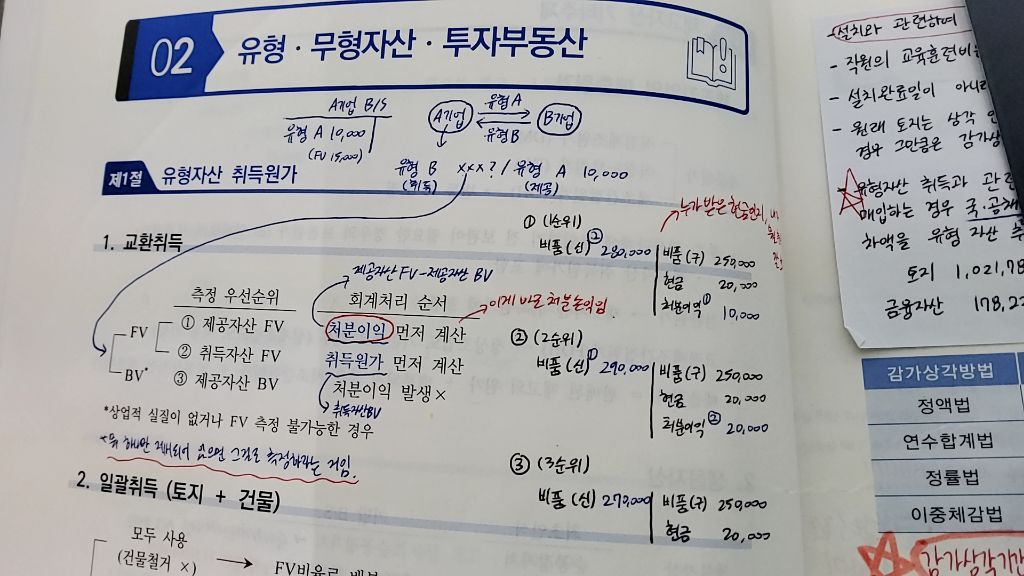 02 유형·무형자산·투자부동산
A기업 B/S
유형 A 10,000
(FV 15,000)
A기업 유형A B기업
유형B
유형 B ×××? / 유형 A 10,000
(취득) (제공)
제1절 유형자산 취득원가
1. 교환취득
제공자산 FV-제공자산 BV
측정 우선순위 회계처리 순서
FV ① 제공자산 FV 처분이익 먼저 계산
이게 바로 처분손익임.
② 취득자산 FV 취득원가 먼저 계산
BV* ③ 제공자산 BV 처분이익 발생×
취득자산BV
*상업적 실질이 없거나 FV 측정 불가능한 경우
① (1순위)
누가 받은 현금인지,
비품(신)② 280,000 비품(구) 250,000
현금 20,000
처분이익① 10,000
② (2순위)
비품(신)① 290,000 비품(구) 250,000
현금 20,000
처분이익② 20,000
③ (3순위)
비품(신) 270,000 비품(구) 250,000
현금 20,000
2. 일괄취득 (토지 + 건물)
모두 사용
(건물철거 ×) → FV비율로 배분
설치와 관련하여
- 직원의 교육훈련비
- 설치완료일이 아니라
- 원래 토지는 상각
경우 그만큼은 감가상
유형자산 취득과 관련
매입하는 경우 국·공채
차액을 유형 자산 취
토지 1,021,78
금융자산 178,22
감가상각방법
정액법
연수합계법
정률법
이중체감법
감가상각기간